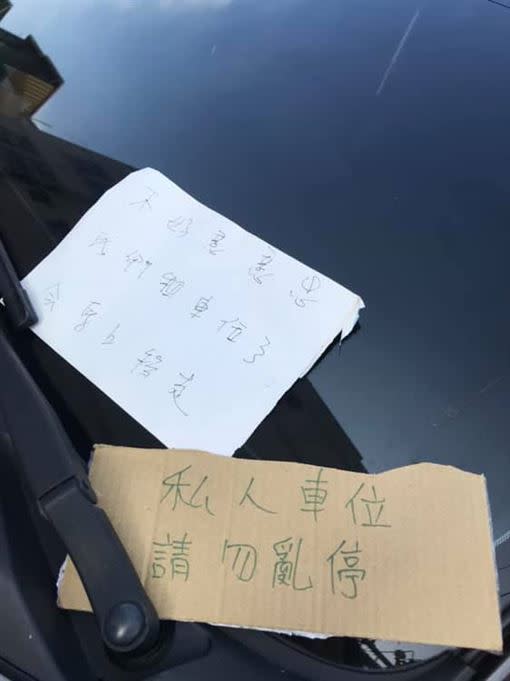 不好意意思
車位了
会馬上移走
私人車位
請勿亂停